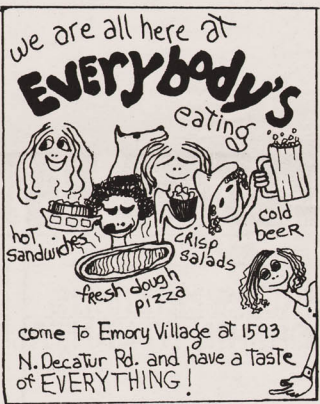 we are all here at
EVERYbody's
eating
hot
sandwiches
fresh dough
pizza
crisp
salads
cold
beer
come to Emory Village at 1593
N. Decatur Rd. and have a taste
of EVERYTHING!